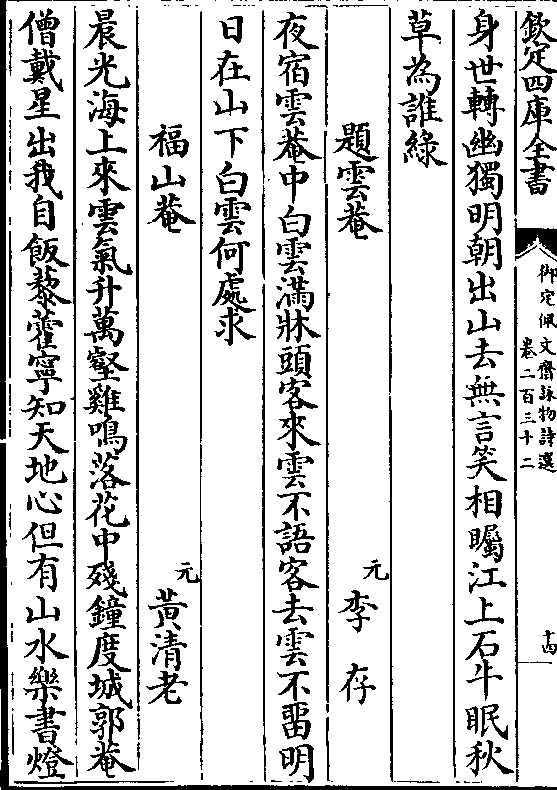 欽定四庫全書
御定佩文齋詠物詩選
卷二百三十二
十四
身世轉幽獨明朝出山去無言笑相矚江上石牛眠秋
草為誰綠
題雲菴
元
李存
夜宿雲菴中白雲滿牀頭客來雲不語客去雲不畱明
日在山下白雲何處求
福山菴
元
黃清老
晨光海上來雲氣升萬壑雞鳴落花中殘鐘度城郭菴
僧戴星出我自飯藜藿寧知天地心但有山水樂書燈